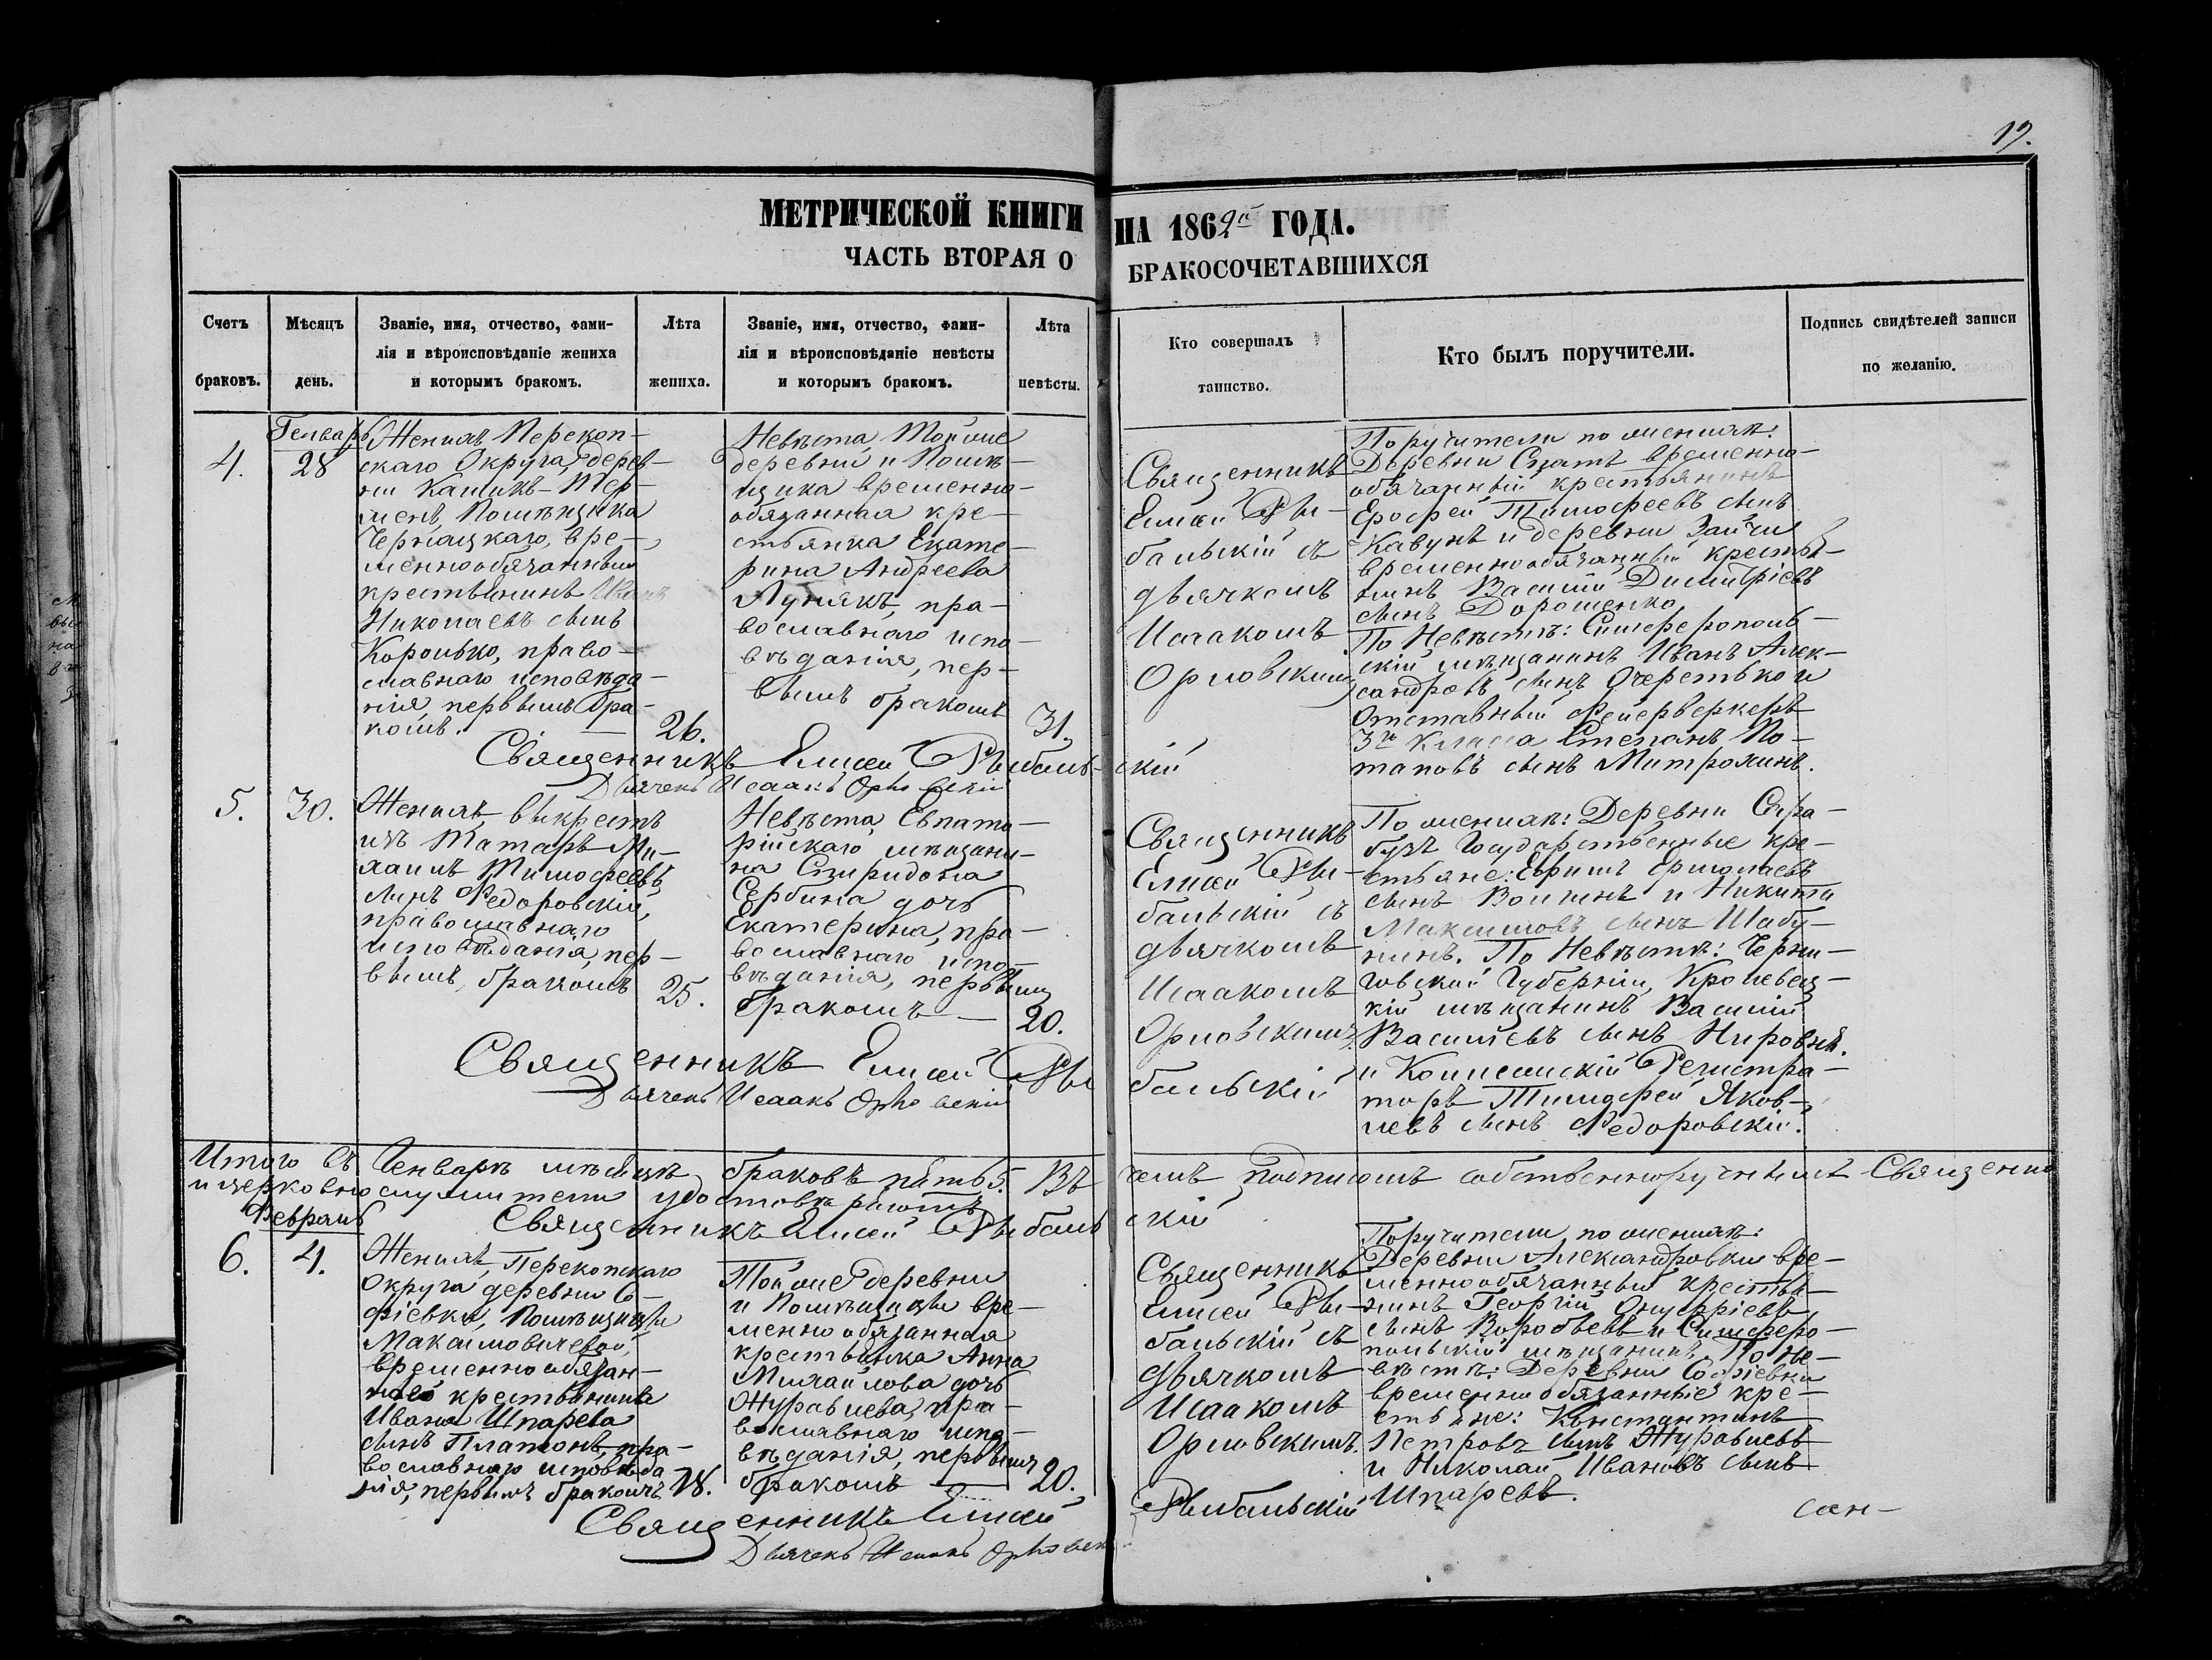 19.
МЕТРИЧЕСКОЙ КНИГИ НА 1862й ГОДА.
ЧАСТЬ ВТОРАЯ О БРАКОСОЧЕТАВШИХСЯ
Счетъ браковъ.
Мѣсяцъ день.
Званіе, имя, отчество, фами-
лія и вѣроисповѣданіе жениха
и которымъ бракомъ.
Лѣта жениха.
Званіе, имя, отчество, фами-
лія и вѣроисповѣданіе невѣсты
и которымъ бракомъ.
Лѣта невѣсты.
Кто совершалъ
таинство.
Кто былъ поручители.
Подпись свидѣтелей записи
по желанію.
Генварь
4.
28
Женихъ Перекоп-
скаго Округа, дерев-
ни Кашикъ-Тер-
менъ, Помѣщика
Черняцкаго, вре-
меннообязанный
крестьянинъ Иванъ
Николаевъ сынъ
Королько, право-
славнаго исповѣда-
нія, первымъ бра-
комъ.
26.
Невѣста, Той же
деревни и Помѣ-
щика временно-
обязанная кре-
стьянка Екате-
рина Андреева
Лунякъ, пра-
вославнаго испо-
вѣданія, пер-
вымъ бракомъ
31.
Священникъ
Елисей Ры-
бальскій съ
дьячкомъ
Исаакомъ
Орловскимъ
Поручители по женихѣ:
Деревни временно-
обязанный крестьянинъ
Ерофей Тимофеевъ сынъ
Кавунъ и деревни
временнообязанный крестья-
нинъ Василій Димитріевъ
сынъ Дорошенко.
По Невѣстѣ: Симферополь-
скій мѣщанинъ Иванъ Алек-
сандровъ сынъ Очеретько и
Отставный Фейерверкеръ
3го класса Степанъ По-
таповъ сынъ Митрохинъ.
Священникъ Елисей Рыбаль-скій
Дьячекъ Исаакъ Орловскій
5.
30.
Женихъ, выкрестъ
изъ Татаръ Ми-
хаилъ Тимофеевъ
сынъ Федоровскій,
православнаго
исповѣданія, пер-
вымъ, бракомъ
25.
Невѣста, Евпато-
рійскаго мѣщани-
на Спиридона
Сербина дочь
Екатерина, пра-
вославнаго испо-
вѣданія, первымъ
бракомъ —
20.
Священникъ
Елисей Ры-
бальскій съ
дьячкомъ
Исаакомъ
Орловскимъ
По женихѣ: Деревни Сара-
бузъ Государственные кре-
стьяне: Ефимъ Ермолаевъ
сынъ и Никита
Максимовъ сынъ Шабу-
нинъ. По Невѣстѣ: Черни-
говской Губерніи, Кролевец-
кій мѣщанинъ Василій
Васильевъ сынъ
и Коллежскій Регистра-
торъ Тимофей Яков-
левъ сынъ Федоровскій.
Священникъ Елисей Рыбальскій
Дьячекъ Исаакъ Орловскій
Итого въ Генварѣ мѣсяцѣ браковъ пять 5. Въ чемъ подписомъ собственноручнымъ Священно
и церковно служители удостовѣряютъ
Священникъ Елисей Рыбальскій
Февраль
6.
4.
Женихъ, Перекопскаго
Округа деревни Со-
фіевки, Помѣщицы
Максимовичевой,
временнообязан-
наго крестьянина
Ивана Шпарева
сынъ Платонъ, пра-
вославнаго исповѣда
нія, первымъ бракомъ
18.
Той же деревни
и Помѣщицы вре-
менно обязанная
крестьянка Анна
Михайлова дочь
Журавлева, пра-
вославнаго испо-
вѣданія, первымъ
бракомъ
20.
Священникъ
Елисей Ры-
бальскій съ
дьячкомъ
Исаакомъ
Орловскимъ.
Поручители по женихѣ:
Деревни Александровки вре-
меннообязанный крестья-
нинъ Георгій Онуфріевъ
сынъ Воробьевъ и Симферо-
польскій мѣщанинъ По Не-
вѣстѣ: Деревни Софіевки
временно обязанные кре-
стьяне: Константинъ
Петровъ сынъ Журавлевъ
и Николай Ивановъ сынъ
Шпаревъ.
Священникъ Елисей Рыбальскій
Дьячекъ Исаакъ Орловск
сан-